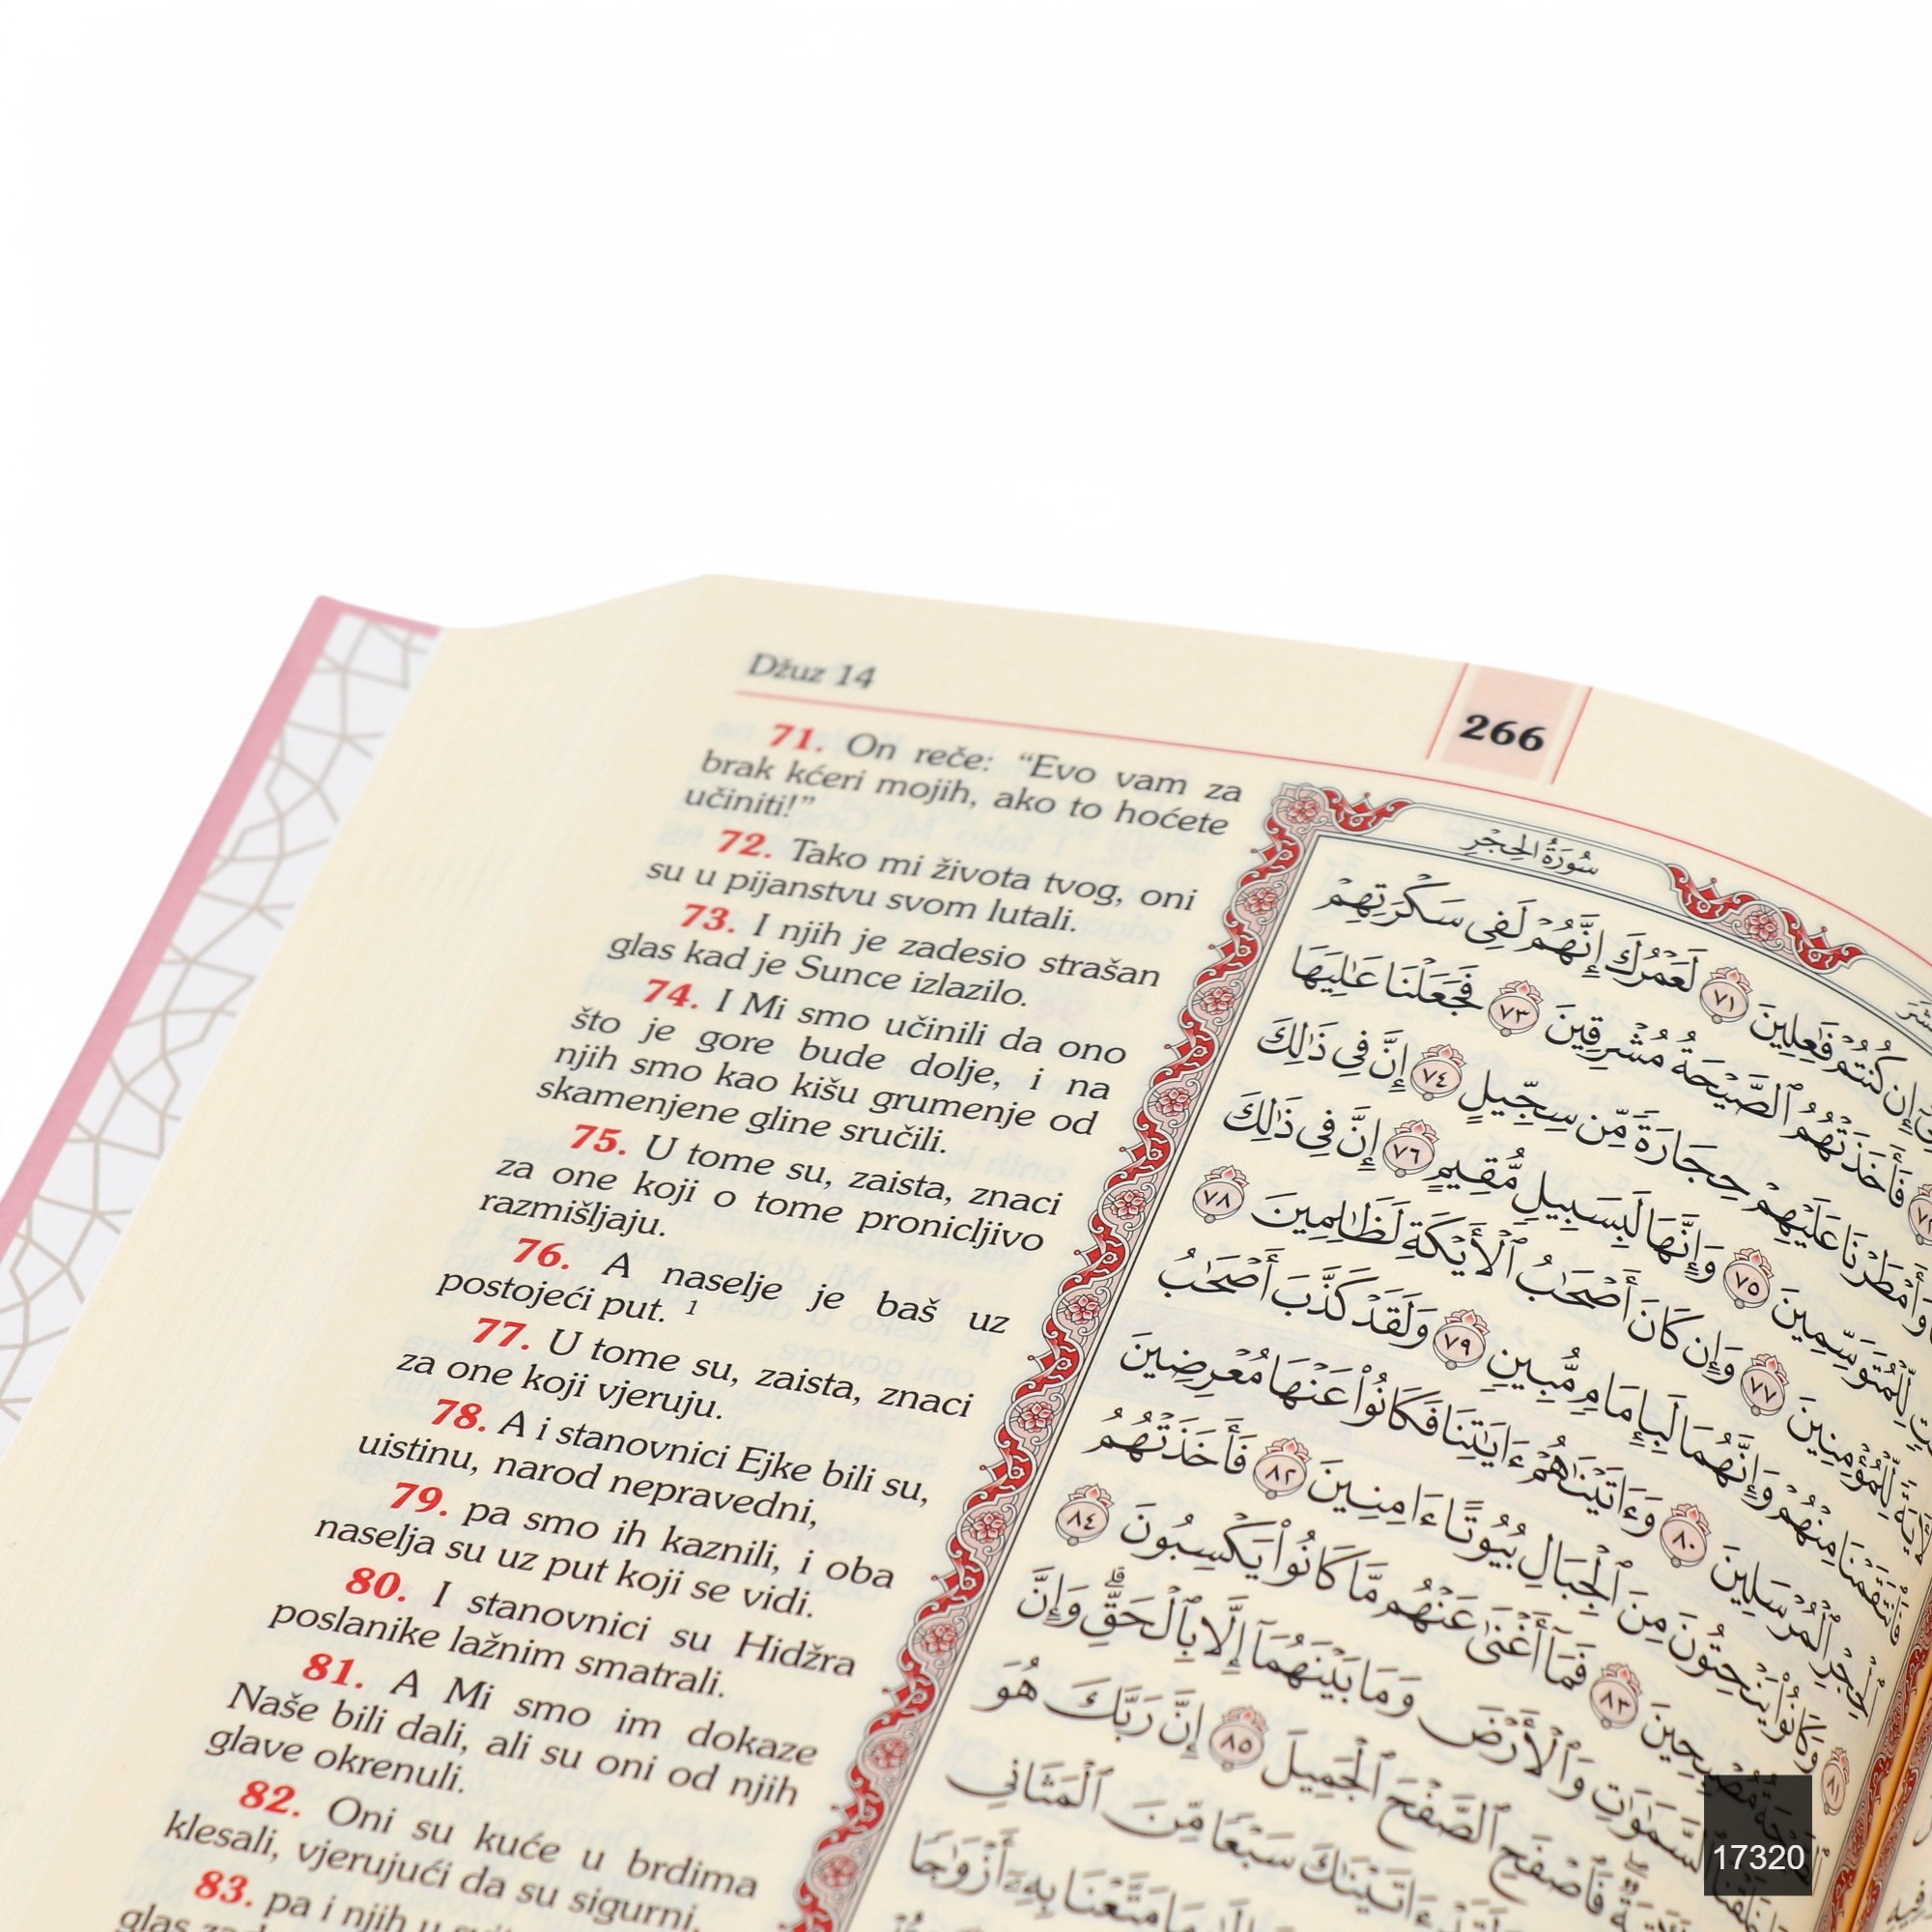 Džuz 14
266
71. On reče: “Evo vam za
brak kćeri mojih, ako to hoćete
učiniti!”
72. Tako mi života tvog, oni
su u pijanstvu svom lutali.
73. I njih je zadesio strašan
glas kad je Sunce izlazilo.
74. I Mi smo učinili da ono
što je gore bude dolje, i na
njih smo kao kišu grumenje od
skamenjene gline sručili.
75. U tome su, zaista, znaci
za one koji o tome pronicljivo
razmišljaju.
76. A naselje je baš uz
postojeći put. 1
77. U tome su, zaista, znaci
za one koji vjeruju.
78. A i stanovnici Ejke bili su,
uistinu, narod nepravedni,
79. pa smo ih kaznili, i oba
naselja su uz put koji se vidi.
80. I stanovnici su Hidžra
poslanike lažnim smatrali.
81. A Mi smo im dokaze
Naše bili dali, ali su oni od njih
glave okrenuli.
82. Oni su kuće u brdima
klesali, vjerujući da su sigurni,
83. pa i njih u
glas
سُورَةُ الحِجۡرِ
إِن كُنتُمۡ فَٰعِلِينَ ٧١ لَعَمۡرُكَ إِنَّهُمۡ لَفِي سَكۡرَتِهِمۡ
فَأَخَذَتۡهُمُ ٱلصَّيۡحَةُ مُشۡرِقِينَ ٧٣ فَجَعَلۡنَا عَٰلِيَهَا
وَأَمۡطَرۡنَا عَلَيۡهِمۡ حِجَارَةٗ مِّن سِجِّيلٍ ٧٤ إِنَّ فِي ذَٰلِكَ
لِّلۡمُتَوَسِّمِينَ ٧٥ وَإِنَّهَا لَبِسَبِيلٖ مُّقِيمٍ ٧٦ إِنَّ فِي ذَٰلِكَ
لِّلۡمُؤۡمِنِينَ ٧٧ وَإِن كَانَ أَصۡحَٰبُ ٱلۡأَيۡكَةِ لَظَٰلِمِينَ ٧٨
فَٱنتَقَمۡنَا مِنۡهُمۡ وَإِنَّهُمَا لَبِإِمَامٖ مُّبِينٖ ٧٩ وَلَقَدۡ كَذَّبَ أَصۡحَٰبُ
ٱلۡحِجۡرِ ٱلۡمُرۡسَلِينَ ٨٠ وَءَاتَيۡنَٰهُمۡ ءَايَٰتِنَا فَكَانُواْ عَنۡهَا مُعۡرِضِينَ
٨١ وَكَانُواْ يَنۡحِتُونَ مِنَ ٱلۡجِبَالِ بُيُوتًا ءَامِنِينَ ٨٢ فَأَخَذَتۡهُمُ
مُصۡبِحِينَ ٨٣ فَمَآ أَغۡنَىٰ عَنۡهُم مَّا كَانُواْ يَكۡسِبُونَ ٨٤
ٱلسَّمَٰوَٰتِ وَٱلۡأَرۡضَ وَمَا بَيۡنَهُمَآ إِلَّا بِٱلۡحَقِّۗ وَإِنَّ
فَٱصۡفَحِ ٱلصَّفۡحَ ٱلۡجَمِيلَ ٨٥ إِنَّ رَبَّكَ هُوَ
ءَاتَيۡنَٰكَ سَبۡعٗا مِّنَ ٱلۡمَثَانِي
مَا مَتَّعۡنَا بِهِۦٓ أَزۡوَٰجٗا
17320